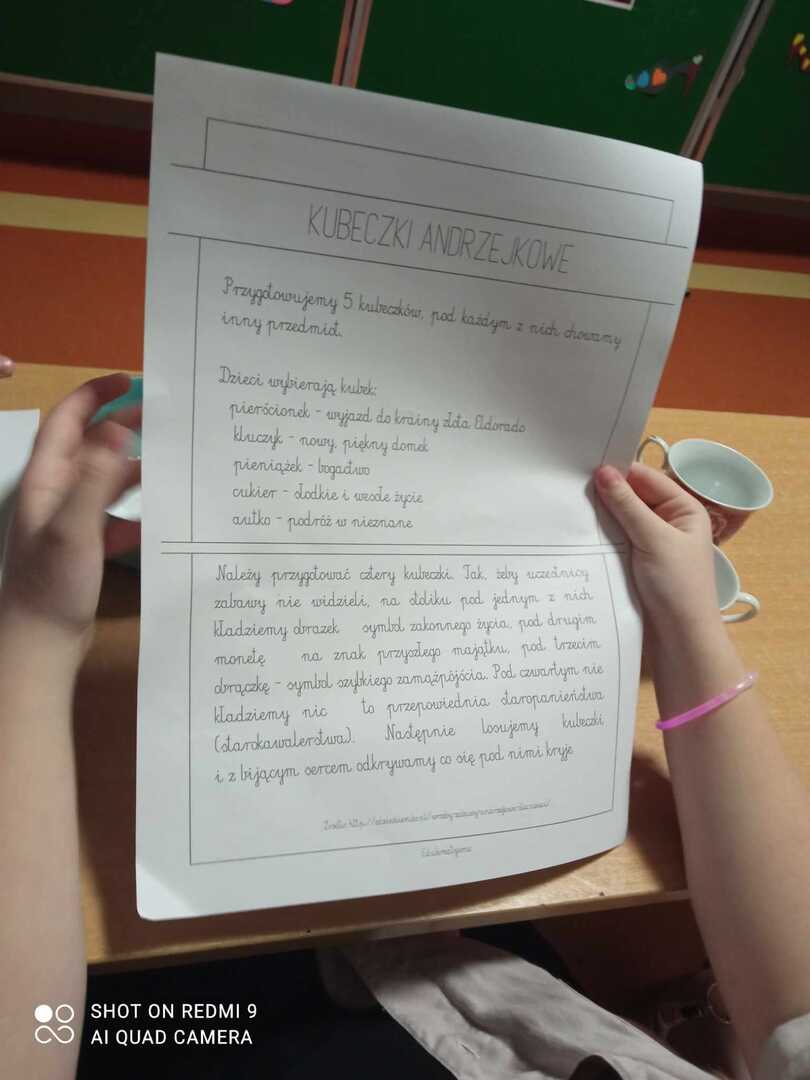 KUBECZKI ANDRZEJKOWE
Przygotowujemy 5 kubeczków, pod każdym z nich chowamy
inny przedmiot.
Dzieci wybierają kubek:
pierścionek - wyjazd do krainy złota Eldorado
kluczyk - nowy, piękny domek
pieniążek - bogactwo
cukier - słodkie i wesołe życie
autko - podróż w nieznane
Należy przygotować cztery kubeczki. Tak, żeby uczestnicy
zabawy nie widzieli, na stoliku pod jednym z nich
kładziemy obrazek symbol zakonnego życia, pod drugim
monetę na znak przyszłego majątku, pod trzecim
obrączkę - symbol szybkiego zamążpójścia. Pod czwartym nie
kładziemy nic to przepowiednia staropanieństwa
(starokawalerstwa). Następnie losujemy kubeczki
i z bijącym sercem odkrywamy co się pod nimi kryje
SHOT ON REDMI 9
AI QUAD CAMERA